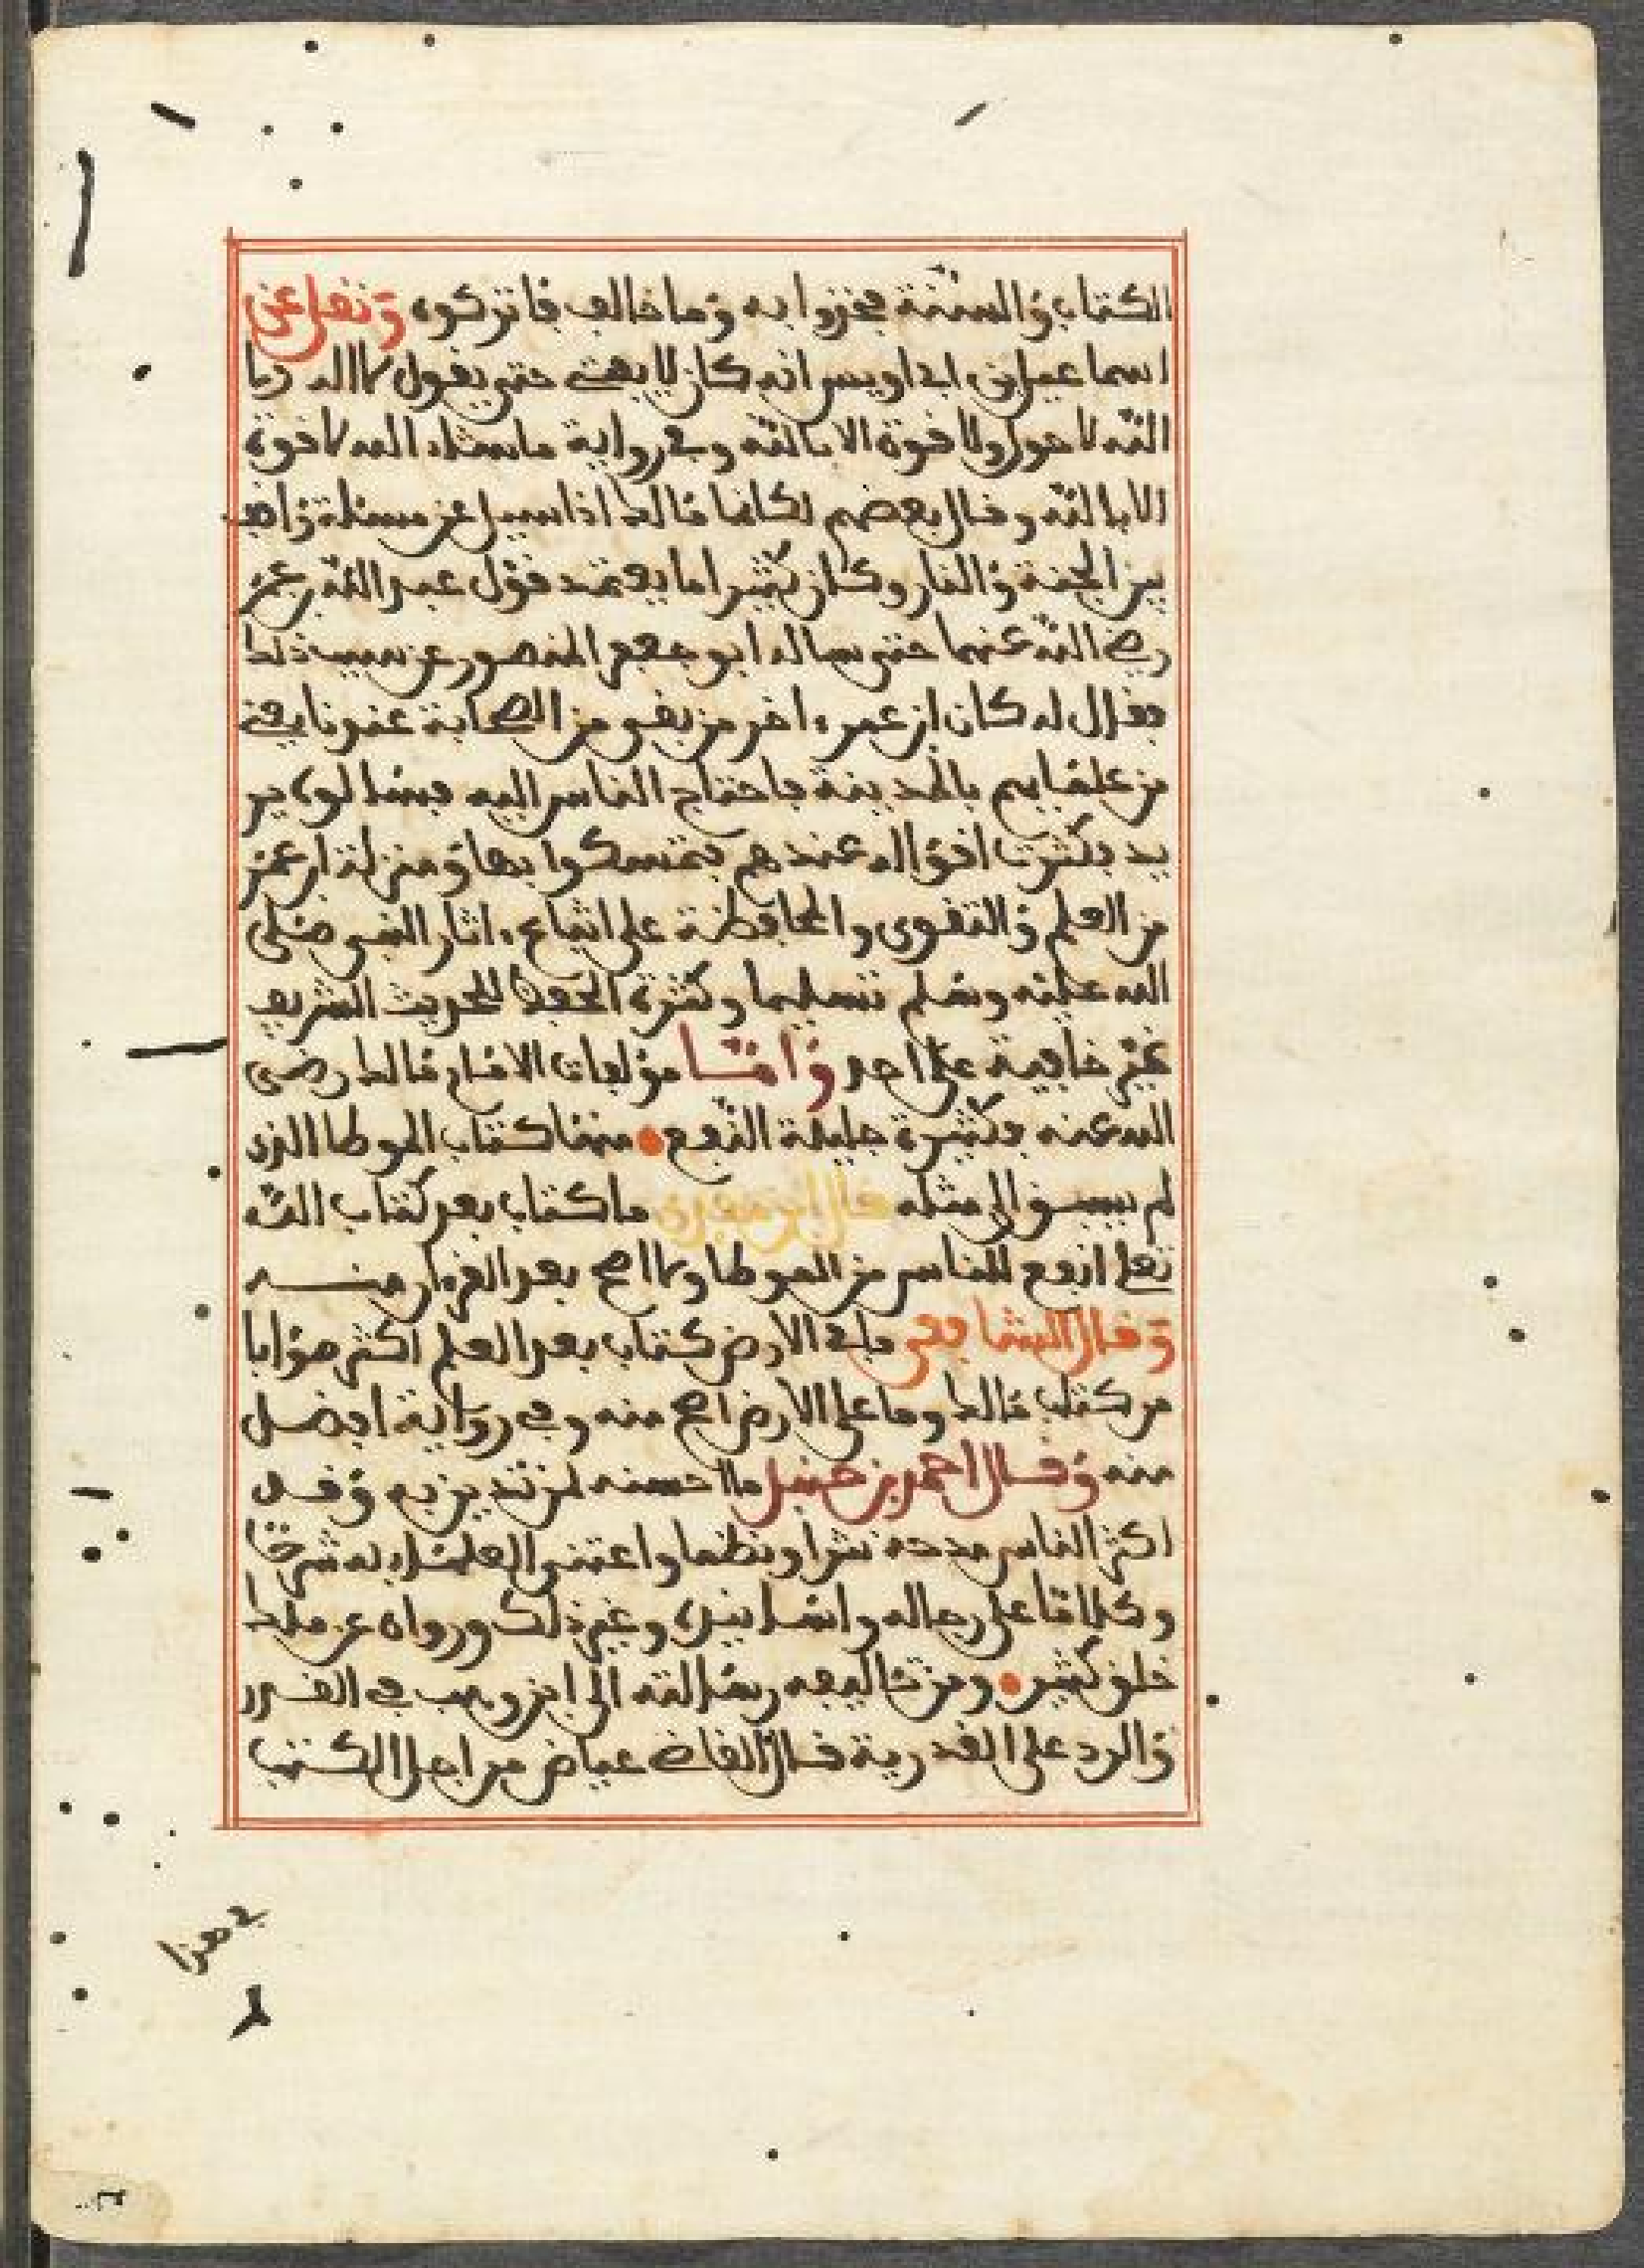 الكتاب والسنة فخذوا به وما خالف فاتركوه ونقل عن
اسماعيل بن ابي اويس انه كان لا يفتي حتى يقول
الله لا حول ولا قوة الا بالله وفي رواية ما شاء الله لا قوة
الا بالله وقال بعضهم لكانما مالك اذا سيل عن مسئلة واقف
بين الجنة والنار وكان كثيرا ما يعتمد قول عبد الله بن عمر
رضي الله عنهما حتى ساله ابو جعفر المنصور عن سبب ذلك
فقال له كان ابن عمر ءاخر من بقي من الصحابة عندنا يعني
من علمايهم بالمدينة فاحتاج الناس اليه فسالوه
فكثرت اقواله عندهم فتمسكوا بها ومنزلة ابن عمر
من العلم والتقوى والمحافظة على اتباع ءاثار النبي صلى
الله عليه وسلم تسليما وكثرة الحفظ للحديث الشريف
غير خافية على احد واما مؤلفات الامام مالك رضي
الله عنه فكثيرة جليلة النفع منها كتاب الموطا الذي
لم يسبق الى مثله قال ابن مهدي ما كتاب بعد كتاب الله
تعلى انفع للناس من الموطا وما اصح بعد القرءان منه
وقال الشافعي ما في الارض كتاب بعد العلم اكثر صوابا
من كتاب مالك وما على الارض اصح منه وفي رواية افضل
منه وقال احمد بن حنبل ما احسنه لمن تدين به وقد
اكثر الناس مدحه نثرا ونظما واعتنى العلماء به شرحا
وكلاما على رجاله واسانيده وغير ذلك ورواه عن مالك
خلق كثير ومن تئاليفه رسالته الى ابن وهب في القدر
والرد على القدرية قال القاضي عياض من اجل الكتب
هذا